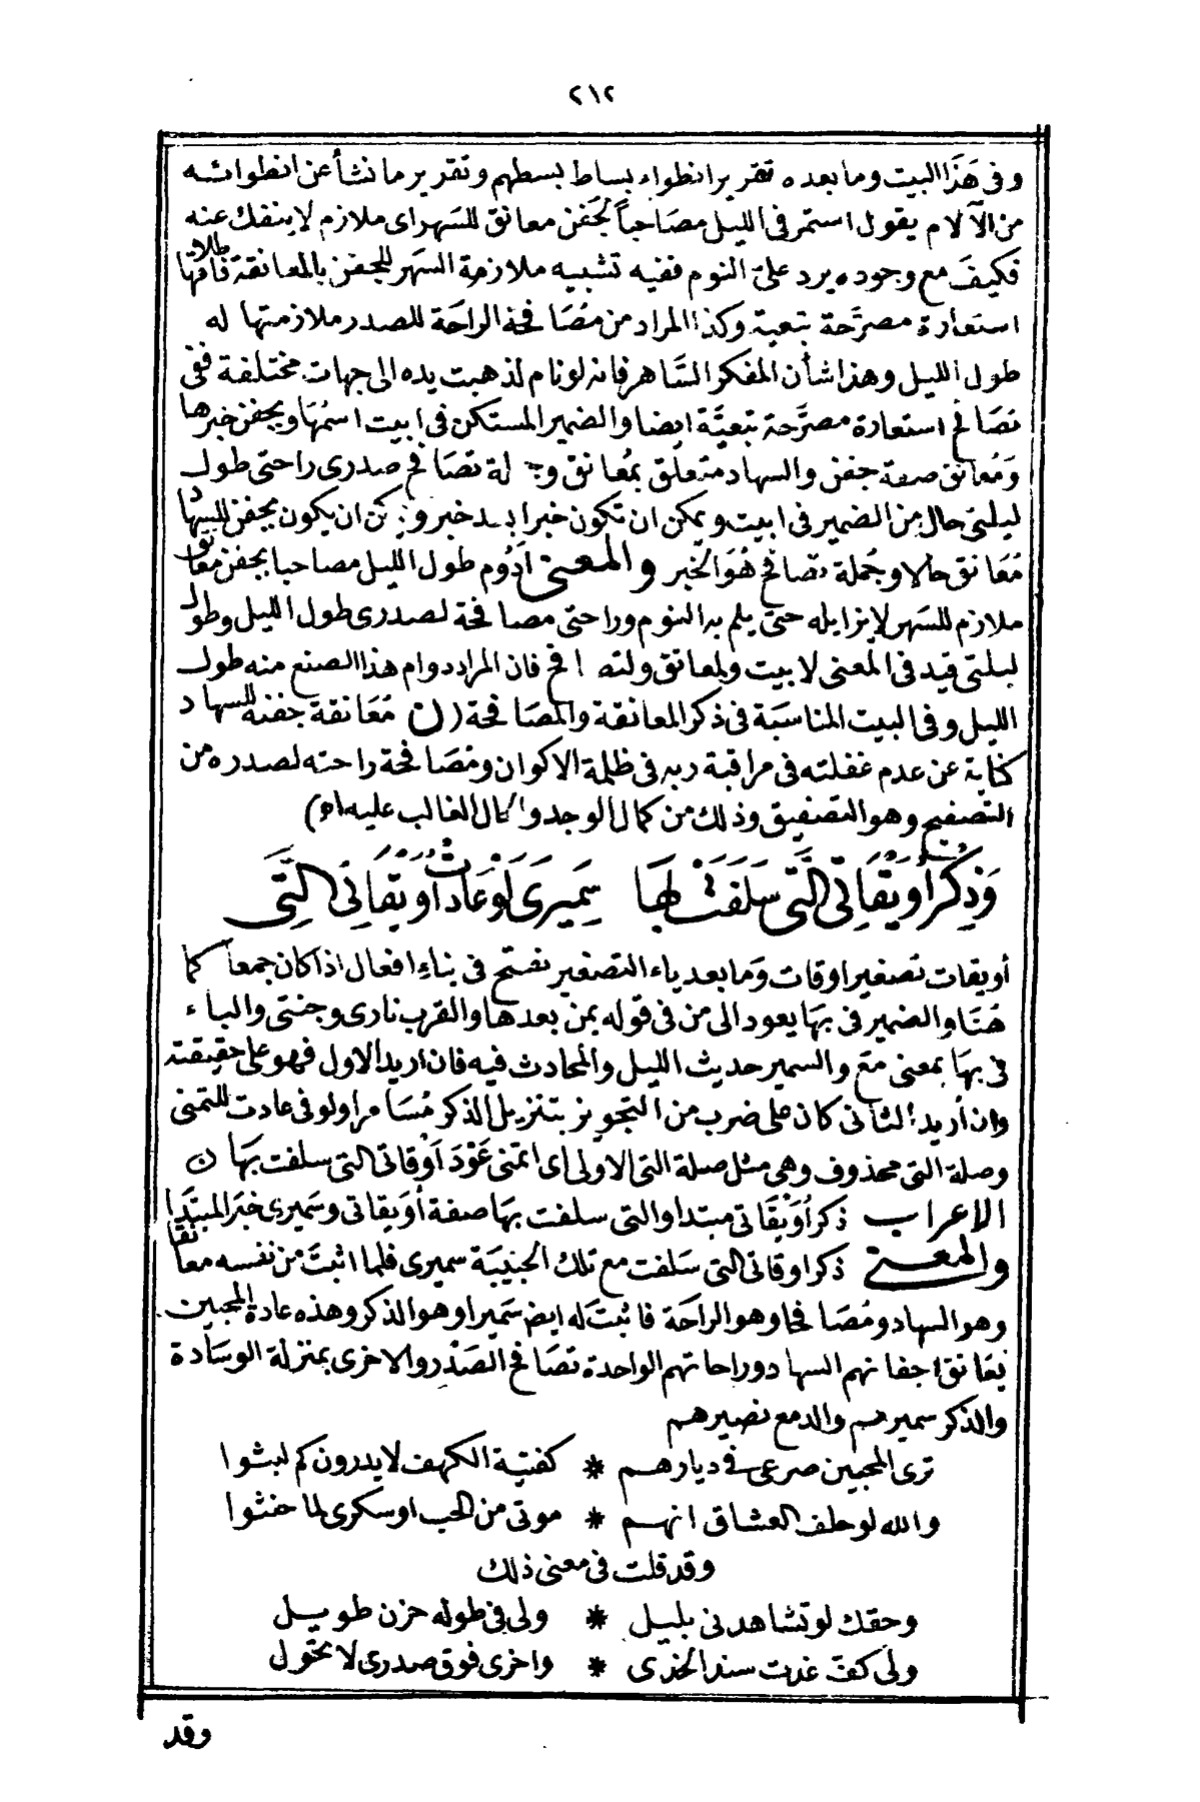 ٢١٢
وفى هَذَا البيت وما بعده تقرير انطواء بساط بسطهم وتقرير ما نشأ عن انطوائه
من الآلام يقول استمر فى الليل مصَاحباً لجَفن معانق للسَهر اى ملازم لا ينفك عنه
فكيفَ مع وجوده يرد علىّ النوم ففيه تشبيه ملازمة السهَر للجفن بالمعانقة فاطلاقها
استعارة مصرَّحة تبعية وكذا المراد من مصَافحة الراحَة للصدر ملازمتها له
طول الليل وهذا شأن المفكر السَّاهر فانه لو نام لذهبت يده الى جهات مختلفة ففى
تصَافح استعارة مصرَّحة تبعيَّة ايضا والضمير المستكن فى ابيت اسمُهَا وبجفن خبرها
وَمُعانق صفة جفن والسهاد متعلق بمُعانق وجملة تصَافح صدرى راحتى طول
ليلتى حال من الضمير فى ابيت ويمكن ان تكون خبرا بعد خبر ويمكن ان يكون بجفن للسهاد
مُعَانق حالا وجُملة تصَافح هُوَ الخبر والمعنى اَدُوم طول الليل مصاحبا بجفن معانق
ملازم للسَهر لا يزايله حتى يلم به النوم وراحتى مصافحة لصدرى طول الليل وطول
ليلتى قيد فى المعنى لابيت ولمعانق ولتصافح فان المراد دوام هذا الصنع منه طول
الليل وفى البيت المناسَبَة فى ذكر المعانقة والمصَافحة (ن مُعَانقة جفنه للسهاد
كناية عن عدم غفلته فى مراقبة ربه فى ظلمة الاكوان ومُصَافحة راحته لصدره من
التصفيح وهو التصفيق وذلك من كمال الوجد والحال الغالب عليه اه)
وَذِكْرُ أُوَيْقَاتِى الَّتِى سَلَفَتْ بِهَا سَمِيرِى لَوْ عَادَتْ أُوَيْقَاتِىَ الَّتِى
أويقات تصغير اوقات وَما بعد ياء التصغير يفتح فى بناءِ افعال اذا كان جمعاً كما
هَنَا والضمير فى بهَا يعود الى من فى قوله بمن بعدها والقرب نارى وجنتى والباء
فى بهَا بمعنى مَع والسمير حديث الليل والمحادث فيه فان اريد الاول فهو على حقيقته
وان أريد الثانى كان على ضرب من التجويز بتنزيل الذكر مُسَامرا ولو فى عادت للتمنى
وصلة التى محذوف وهى مثل صلة التى الاولى اى اتمنى عَوْدَ اَوْقاتى التى سلفت بهَا ن
الاعراب ذكر اُوَيْقَاتى مبتدا والتى سلفت بهَا صفة أوَيقاتى وسَميرى خبَر المبتدَا
والمعنى ذكر اوقاتى التى سَلفت مع تلك الحَبيبَة سميرى فلما اثبتَ من نفسه معانقا
وهو السهاد ومُصَافحا وهو الراحَة فاثبتَ له ايضا سَميرا وهو الذكر وهذه عادة المحبين
يعانق اجفانهم السهاد وراحاتهم الواحدة تصَافح الصَدْر والاخرى بمنزلة الوسَادة
والذكر سميرهم والدمع نصيرهم
ترى المحبين صرعى فى ديارهم * كفتية الكهف لا يدرون كم لبثوا
والله لو حلف العشاق انهم * موتى من الحب او سكرى لما حنثوا
وقد قلت فى معنى ذلك
وحقك لو تشاهدنى بليل * ولى فى طوله حزن طويل
ولى كف غدت سندا لخدى * واخرى فوق صدرى لا تحول
وقد